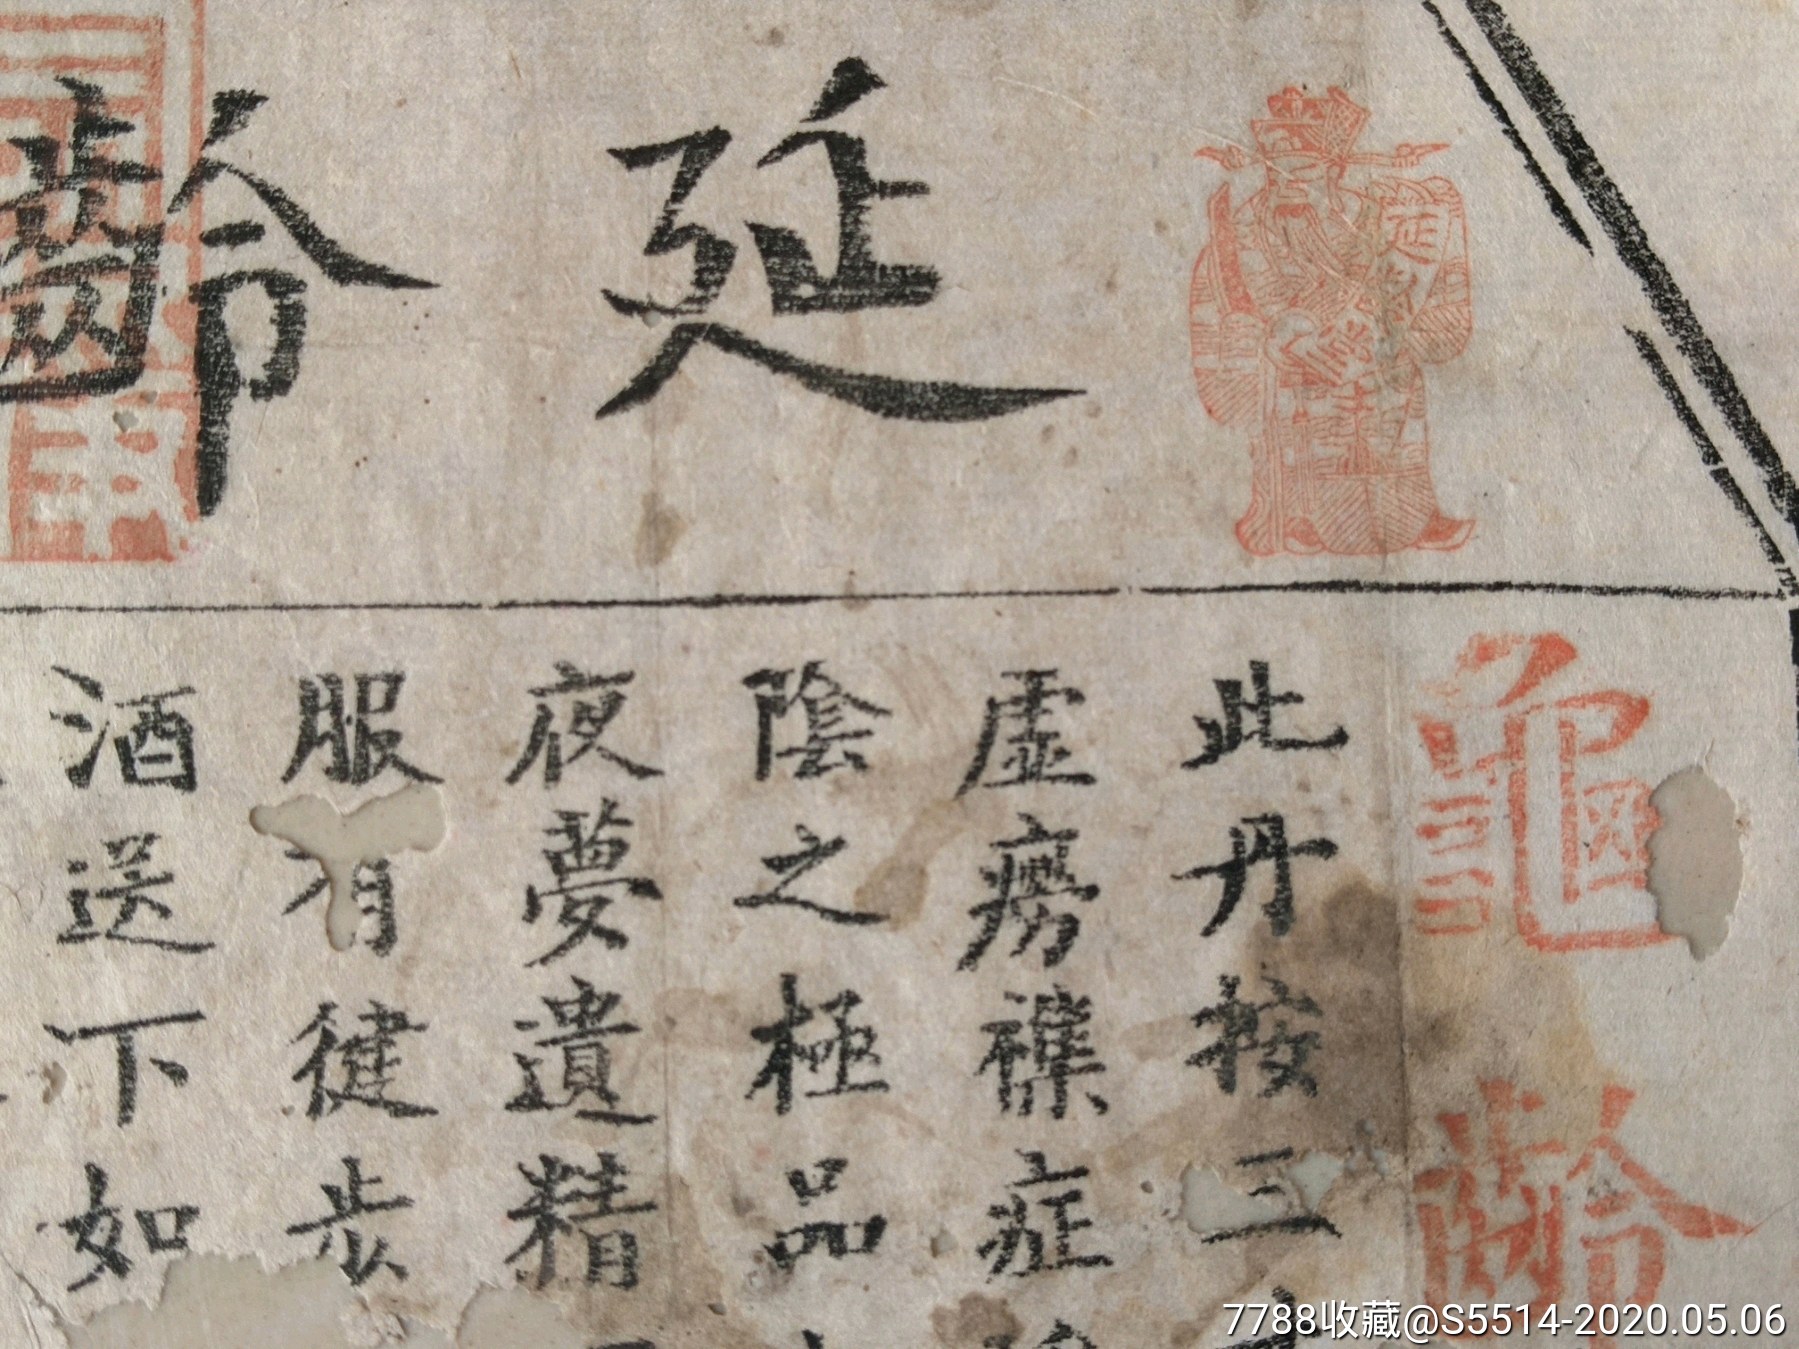 延齡
龜齡
此丹按三
虛癆襍症
陰之極品
夜夢遺精
服有健步
酒送下如
7788收藏@S5514-2020.05.06